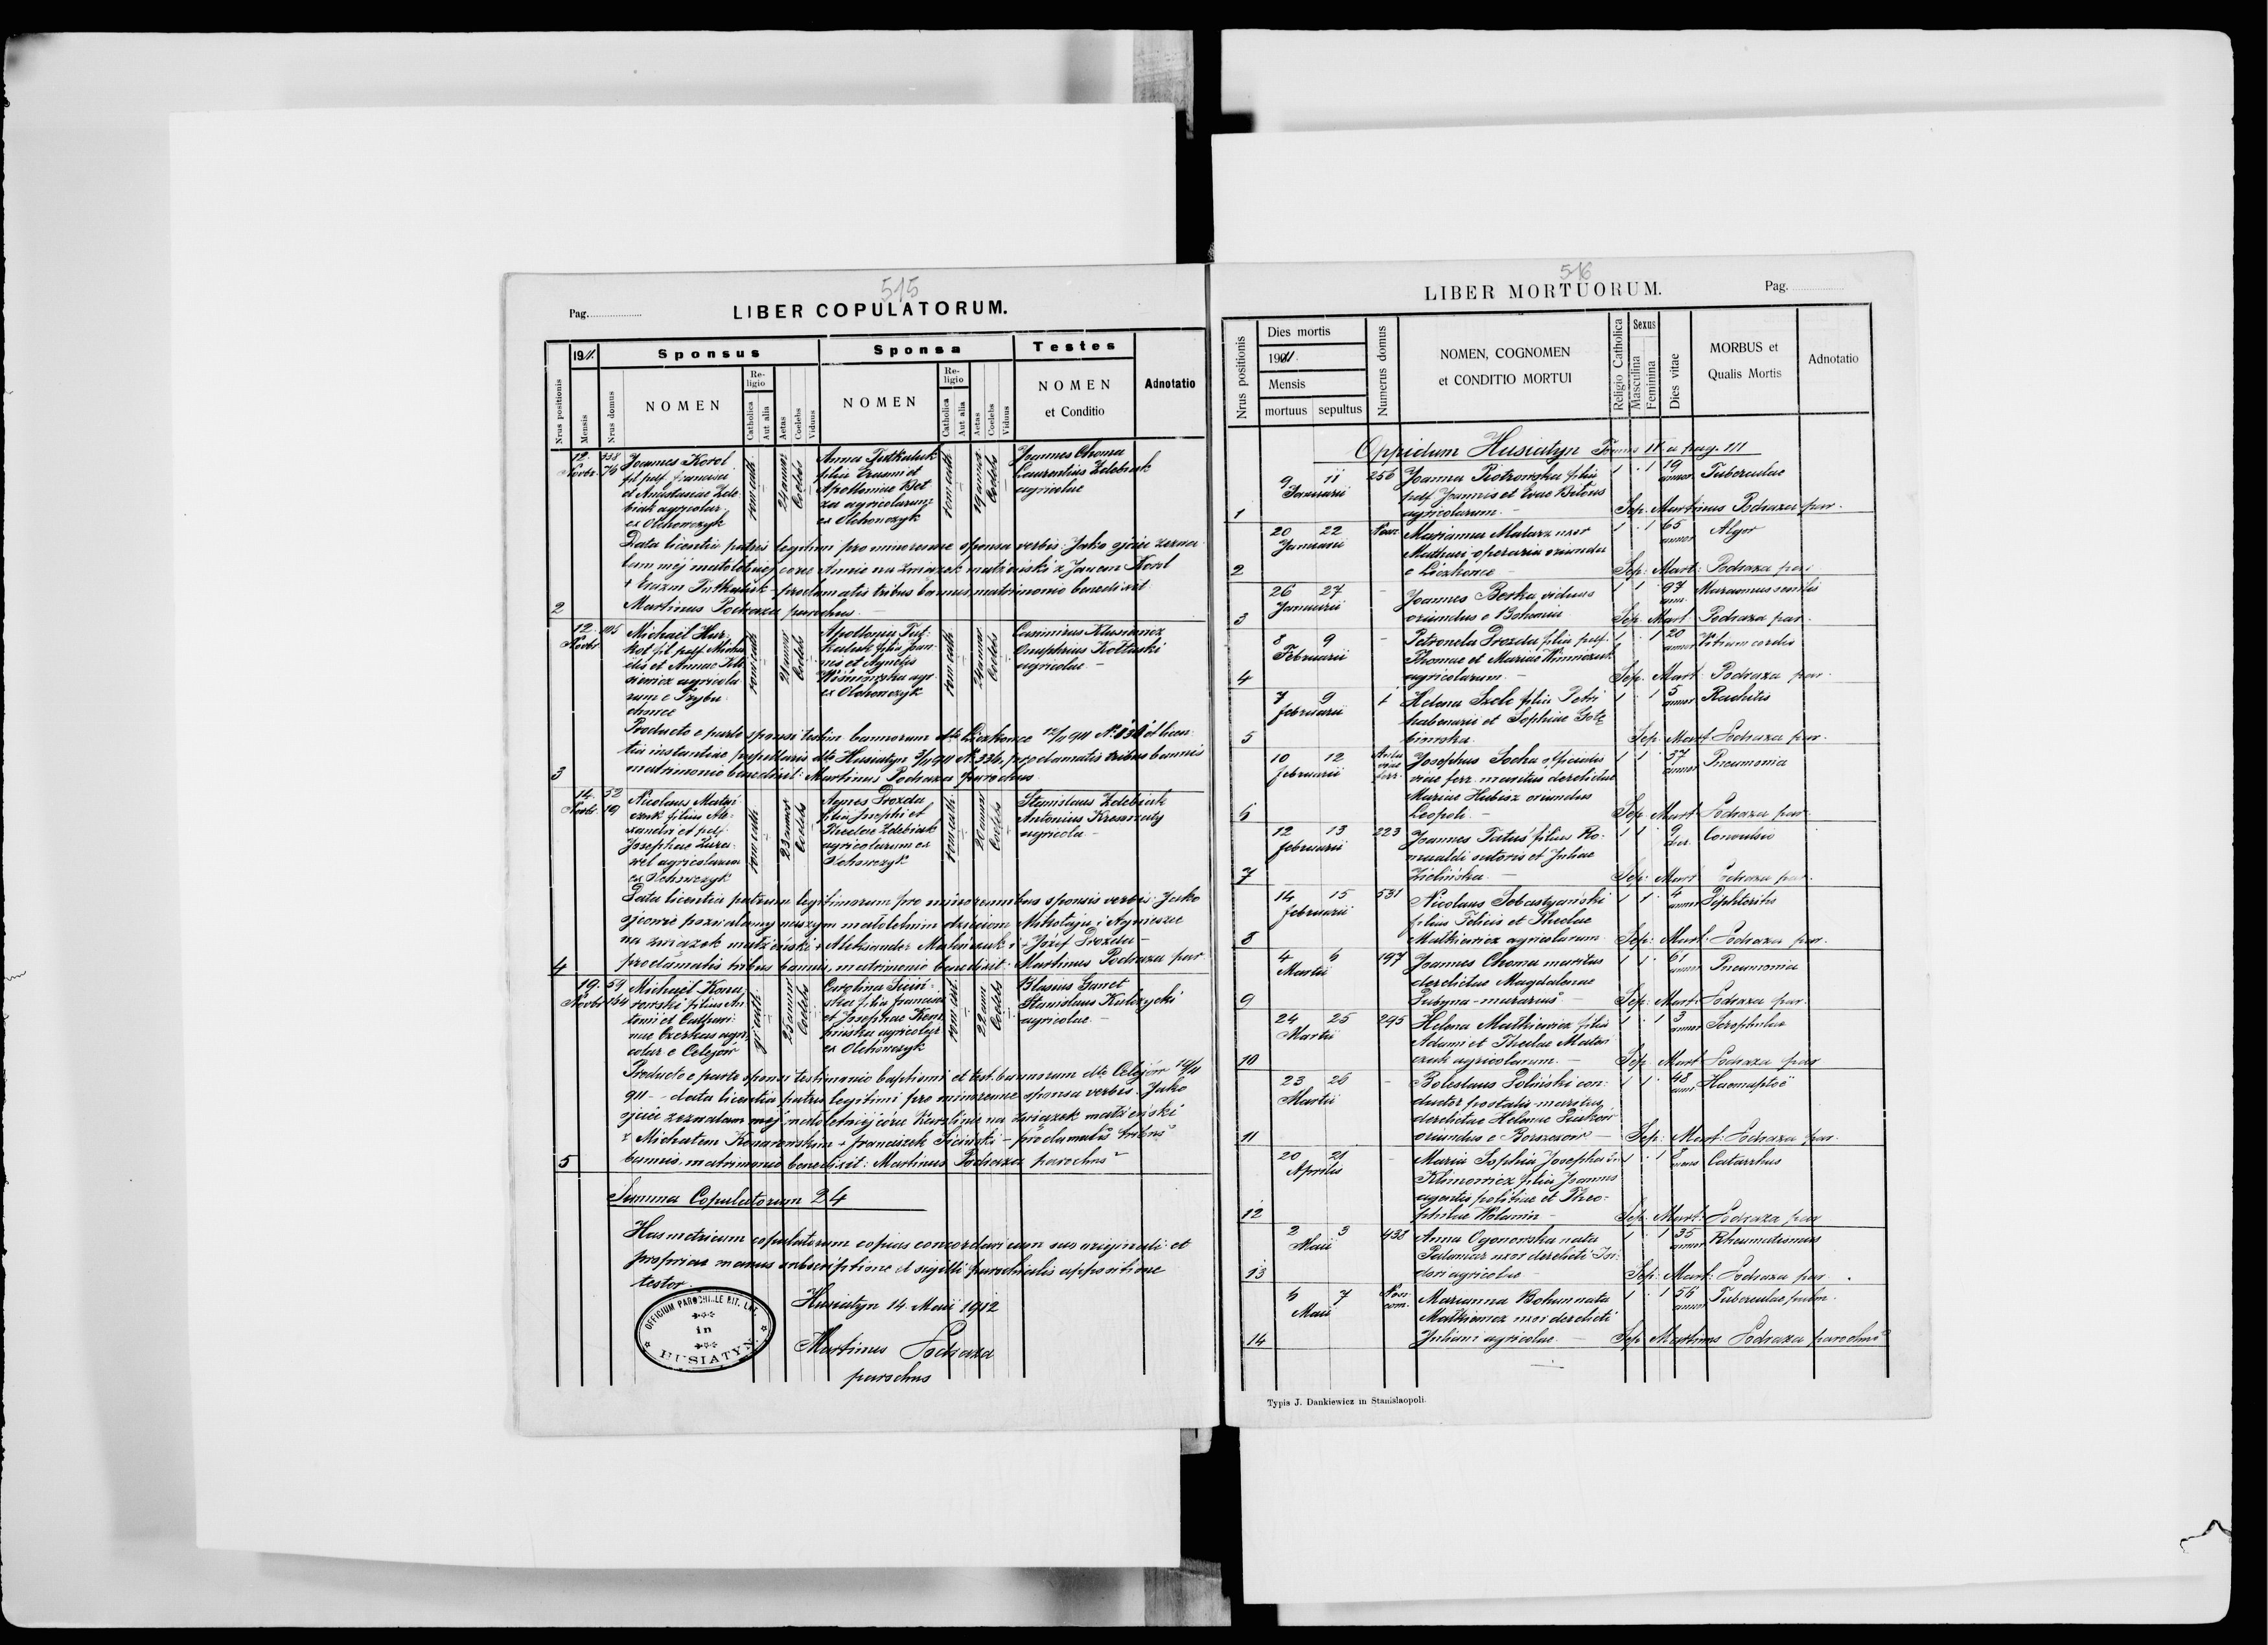 515
Pag.
LIBER COPULATORUM.
Nrus positionis
1911.
Mensis
Nrus domus
Sponsus
NOMEN
Religio
Catholica
Aut alia
Aetas
Coelebs
Viduus
Sponsa
NOMEN
Religio
Catholica
Aut alia
Aetas
Coelebs
Viduus
Testes
NOMEN
et Conditio
Adnotatio
2
12.
Novbr.
338
76
Joannes Korol
fil. pdf. Francisci
et Anastasiae Zde-
biak agricolar.
ex Olchowczyk
rom cath.
24 annor
Coelebs
Anna Tutkaluk
filia Erasmi et
Apolloniae Bet
za agricolarum
ex Olchowczyk
rom cath.
19 annor
Coelebs
Joannes Choma
Laurentius Zdebiak
agricolae
Data licentia patris legitimi pro minorenne sponsa verbis: Jako ojciec zezwa-
lam mej małoletniej córce Annie na związek małżeński z Janem Korol
+ Erazm Tutkaluk - proclamatis tribus bannis, matrimonio benedixit
Martinus Podraza parochus.
3
12.
Novbr
105
Michaël Hur-
kot fil. pdf. Micha
elis et Annae
agricola
rum e Trybu
chowce
rom cath.
21 annor
Coelebs
Apollonia Tut-
kaluk filia Joan
nis et Agnetis
Wiśniowska agr.
ex Olchowczyk
rom cath.
24 annor
Coelebs
Casimirus
Onuphrius Kołtuski
agricolae
Producto e parte sponsi testim. bannorum dto Liczkowce 12/11 911 N: et licen-
tia instantiae pupillaris dto Husiatyn 3/11 911 N. 336, proclamatis tribus bannis
matrimonio benedixit: Martinus Podraza parochus
4
14.
Novbr
52
19
Nicolaus Matwi
czuk filius Ale-
xandri et pdf.
Josephae
agricolarum
ex Olchowczyk
rom cath.
23 annor
Coelebs
Agnes Drozda
filia Josephi et
Theclae Zdebiak
agricolarum ex
Olchowczyk
rom cath.
20 annor
Coelebs
Stanislaus Zdebiak
Antonius
agricolae
Data licentia patrum legitimorum pro minorennibus sponsis verbis: Jako
ojcowie pozwalamy naszym małoletnim dzieciom Mikołaju i Agnieszce
na związek małżeński + Aleksander i + Józef Drozda -
proclamatis tribus bannis, matrimonio benedixit: Martinus Podraza par
5
19.
Novbr
59
154
Michaël Kona
rowski filius An-
tonii et Cathari
nae agri-
colar. e Celejów
gr. cath.
25 annor
Coelebs
Carolina Siciń-
ska filia Francisci
et Josephae
agricolar
ex Olchowczyk
rom cat.
22 ann
Coelebs
Blasius Ganet
Stanislaus Kulczycki
agricolae
Producto e parte sponsi testimonio baptismi et test. bannorum dto Celejów 14/11
911 - data licentia patris legitimi pro minorenne sponsa verbis: Jako
ojciec zezwalam mej małoletniej córce Karolinie na związek małżeński
z Michałem Konarowskim + Franciszek Siciński - proclamatis tribus
bannis, matrimonio benedixit: Martinus Podraza parochus
Summa Copulatorum 24
Has metricum copulatorum copias concordari cum suo originali et
propriae manus subscriptione et sigilli parochialis appositione
testor
OFFICIUM PAROCHIALE RIT. LAT.
in
HUSIATYN
Husiatyn 14. Maii 1912
Martinus Podraza
parochus
516
LIBER MORTUORUM.
Pag.
Nrus positionis
Dies mortis
1911.
Mensis
mortuus
sepultus
Numerus domus
NOMEN, COGNOMEN
et CONDITIO MORTUI
Religio Catholica
Sexus
Masculina
Feminina
Dies vitae
MORBUS et
Qualis Mortis
Adnotatio
Oppidum Husiatyn Tomus IV a pag. 111
1
9
11
Januarii
256
Joanna Piotrowska filia
pdf. Joannis et Evae
agricolarum.
1
1
19
annor
Tuberculae
Sep. Martinus Podraza par.
2
20
22
Januarii
Marianna Malarz uxor
Mathaei operaria oriunda
e Liczkowce
1
1
65
annor
Algor
Sep. Mart. Podraza par.
3
26
27
Januarii
-
Joannes Berka viduus
oriundus e Bohemia
1
1
97
ann.
Marasmus senilis
Sep. Mart Podraza par.
4
8
9
Februarii
-
Petronela Drozda filia pdf.
Thomae et Mariae
agricolarum.
1
1
20
annor
Vitium cordis
Sep. Mart. Podraza par.
5
7
9
Februarii
Helena Szele filia Petri
et Sophiae Gołę
biowska.
1
1
5
annor
Rachitis
Sep. Mart. Podraza par.
6
10
12
Februarii
Josephus Socha officialis
viae ferr. maritus derelictus
Mariae Hubisz oriundus
Leopoli. -
1
1
37
annor
Pneumonia
Sep. Mart. Podraza par.
7
12
13
Februarii
223
Joannes Tatuś filius Ro-
mualdi sutoris et Juliae
Zielińska. -
1
1
9
dier.
Convulsio
Sep. Mart. Podraza par.
8
14
15
Februarii
531
Nicolaus Sobastyański
filius Felicis et Theclae
Małkiewicz agricolarum
1
1
4
annor
Sep. Mart. Podraza par.
9
4
6
Martii
197
Joannes Choma maritus
derelictus Magdalenae
Dubyna - murarius
1
1
61
annor
Pneumonia
Sep. Mart. Podraza par.
10
24
25
Martii
295
Helena Małkiewicz filia
Adami et Theclae Matwi
czuk agricolarum. -
1
1
3
annor
Scrophulae
Sep. Mart. Podraza par
11
23
26
Martii
-
Boleslaus Soliński con-
ductor postalis maritus
derelictus Helenae
oriundus e Borszczów -
1
1
48
ann
Haemoptoë
Sep. Mart. Podraza par.
12
20
21
Aprilis
-
Maria Sophia Josepha
Klimowicz filia Joannis
agentis politiae et Theo-
philae Wolanin -
1
1
8
mens
Catarrhus
Sep. Mart. Podraza par
13
2
3
Maii
438
Anna Ogonowska nata
Palamar uxor derelicti Isi-
dori agricolae
1
1
35
annor
Rheumatismus
Sep. Mart. Podraza par
14
6
7
Maii
Marianna Bohun nata
Małkiewicz uxor derelicti
Juliani agricolae. -
1
1
56
annor
Tuberculae pulm.
Sep. Martinus Podraza parochus
Typis J. Dankiewicz in Stanislaopoli.